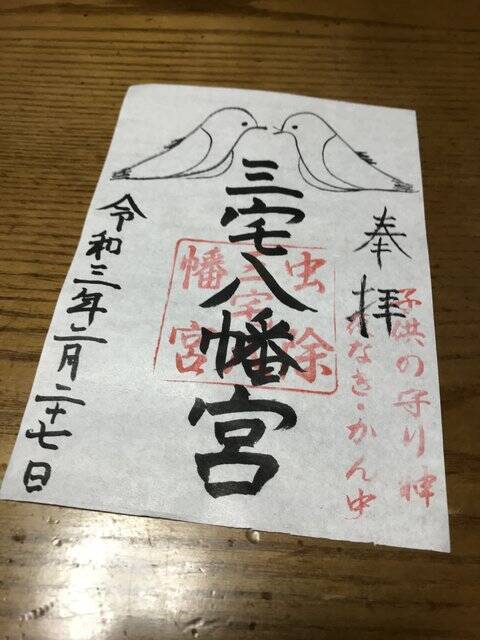 奉拝
子供の守り神
かん虫
三宅八幡宮
虫除
三宅八
幡宮
令和三年二月二十七日